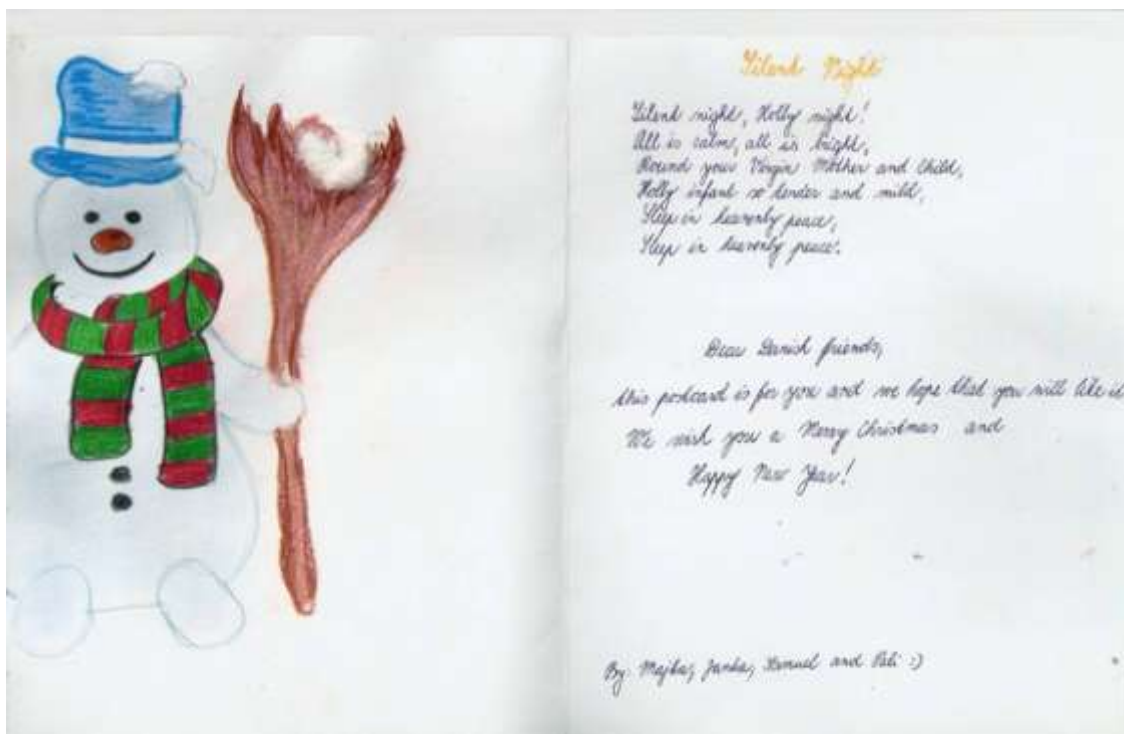 Silent Night
Silent night, Holly night!
All is calm, all is bright,
Round your Virgin Mother and Child,
Holly infant so tender and mild,
Sleep in heavenly peace,
Sleep in heavenly peace.
Dear Danish friends,
this postcard is for you and we hope that you will like it
We wish you a Merry Christmas and
Happy New Year!
By: Majka, Janka, Samuel and Pali :)